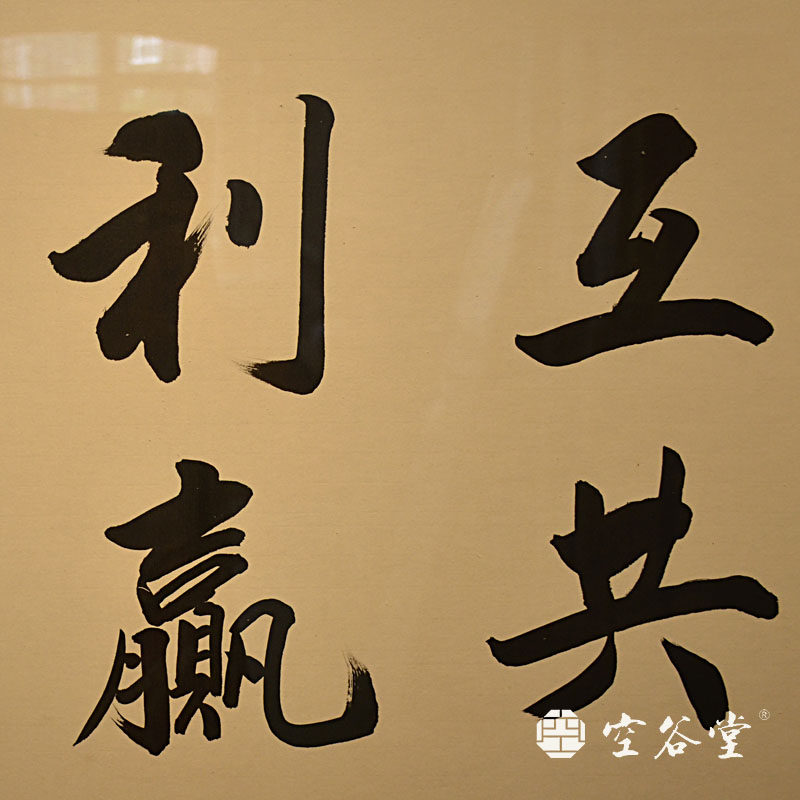 互利
共贏
空谷堂®